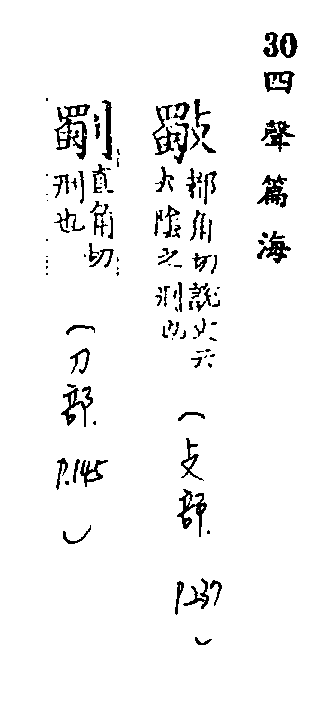 30四聲篇海
斀都角切說文云
去陰之刑也
(攴部. P.237)
劅直角切
刑也
(刀部. P.145)